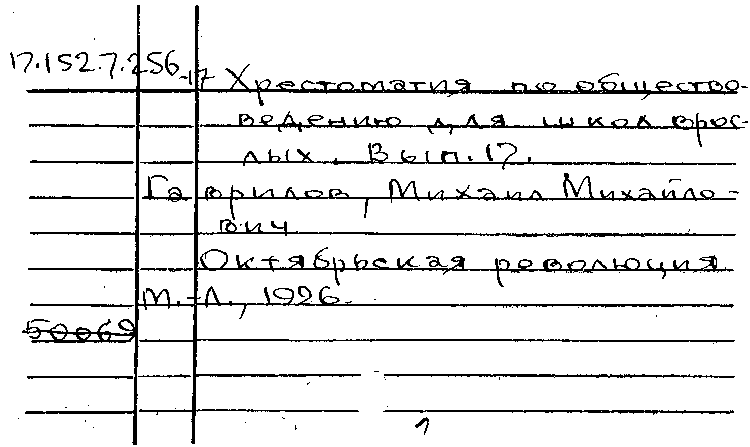 17.152.7.256-17 Хрестоматия по общество-
ведению для школ врос-
лых. Вып. 17.
Гаврилов, Михаил Михайло-
вич
Октябрьская революция
М.-Л., 1926.
50069
1